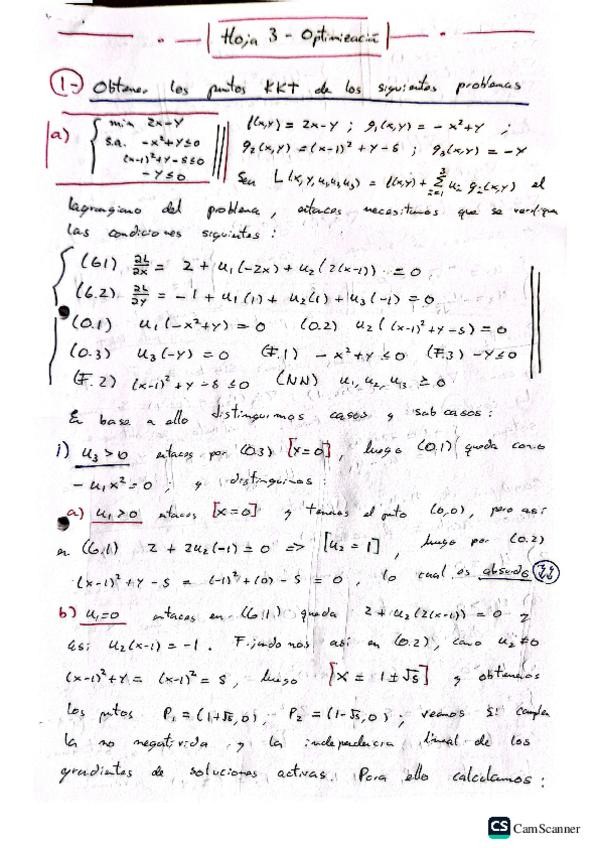 Hoja 3 - Optimización
1.- Obtener los puntos KKT de los siguientes problemas
a) { min 2x-y f(x,y) = 2x-y ; g₁(x,y) = -x²+y ;
s.a. -x²+y≤0 g₂(x,y) = (x-1)²+y-5 ; g₃(x,y) = -y
(x-1)²+y-5≤0
-y≤0 Sea L(x,y,u₁,u₂,u₃) = f(x,y) + Σ³ᵢ₌₁ uᵢ gᵢ(x,y) el
lagrangiano del problema, entonces necesitamos que se verifiquen
las condiciones siguientes :
(G.1) ∂L/∂x = 2 + u₁(-2x) + u₂(2(x-1)) = 0
(G.2) ∂L/∂y = -1 + u₁(1) + u₂(1) + u₃(-1) = 0
(O.1) u₁(-x²+y) = 0 (O.2) u₂((x-1)²+y-5) = 0
(O.3) u₃(-y) = 0 (F.1) -x²+y≤0 (F.3) -y≤0
(F.2) (x-1)²+y-5≤0 (NN) u₁,u₂,u₃ ≥ 0
En base a ello distinguimos casos y subcasos :
i) u₃>0 entonces por (O.3) [y=0], luego (O.1) queda como
-u₁x²=0 ; y distinguimos :
a) u₁>0 entonces [x=0] y tenemos el punto (0,0), pero así
en (G.1) 2+2u₂(-1)=0 => [u₂=1], luego por (O.2)
(x-1)²+y-5 = (-1)²+(0)-5 = 0, lo cual es absurdo
b) u₁=0 entonces en (G.1) queda 2+u₂(2(x-1))=0 y
así u₂(x-1)=-1. Fijándonos así en (O.2), como u₂≠0
(x-1)²+y = (x-1)² = 5, luego [x = 1±√5] y obtenemos
los puntos P₁ = (1+√5,0), P₂ = (1-√5,0) ; veamos si cumplen
la no negatividad y la independencia lineal de los
gradientes de soluciones activas. Para ello calculamos :
CS CamScanner